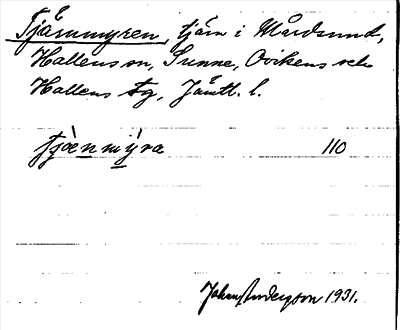 Tjärnmyren, tjärn i Mårdsund,
Hallens sn, Sunne, Ovikens och
Hallens tg, Jämtl. l.
tjæ̀nmy̆ra 110
Johan Anderson 1931.